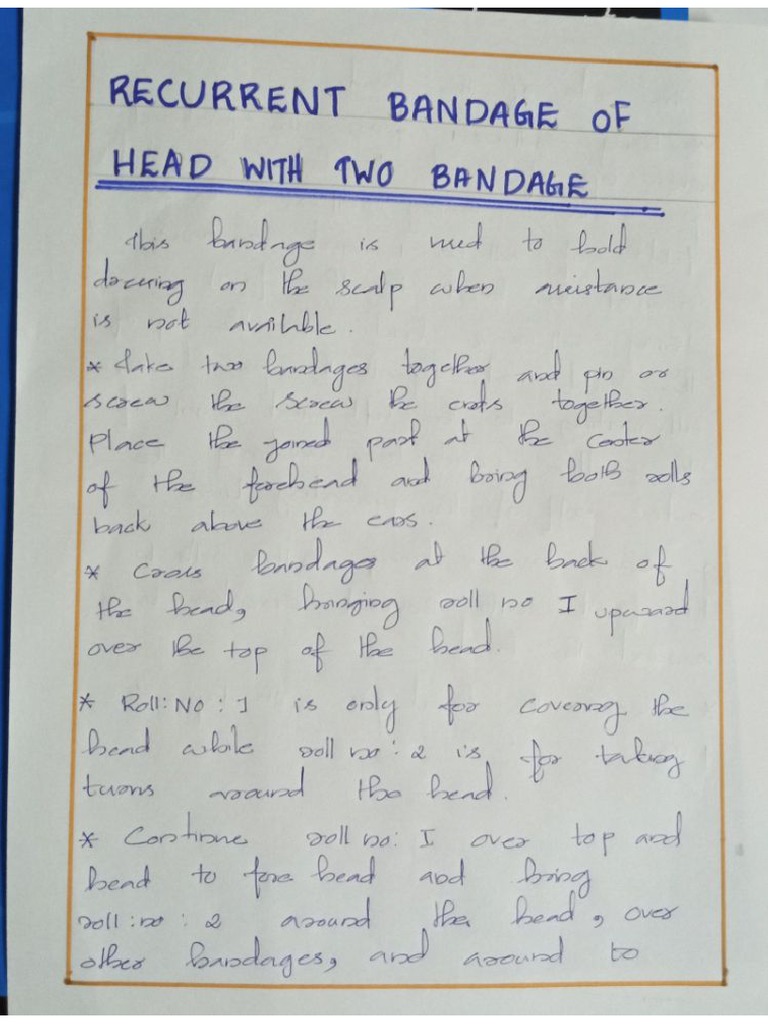 RECURRENT BANDAGE OF
HEAD WITH TWO BANDAGE
This bandage is used to hold
dressing on the scalp when assistance
is not available.
* Take two bandages together and pin or
screw the screw the ends together.
Place the joined part at the center
of the forehead and bring both rolls
back above the ears.
* Cross bandages at the back of
the head, bringing roll no I upward
over the top of the head.
* Roll: No : 1 is only for covering the
head while roll no : 2 is for taking
turns around the head.
* Continue roll no: I over top and
head to fore head and bring
roll : no : 2 around the head, over
other bandages, and around to